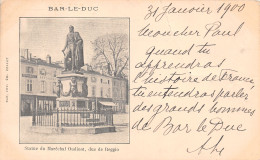 BAR-LE-DUC
31 Janvier 1900
Mon cher Paul
Quand tu
apprendras
l'histoire de France
tu entendras parler
des grands hommes
de Bar le Duc
Statue du Maréchal Oudinot, duc de Reggio